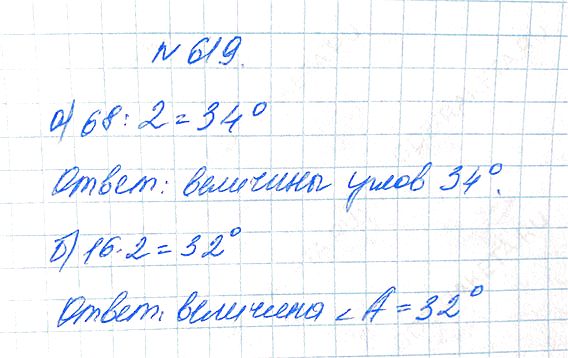 № 619.
а) 68 : 2 = 34°
Ответ: величины углов 34°.
б) 16 · 2 = 32°
Ответ: величина ∠ А = 32°